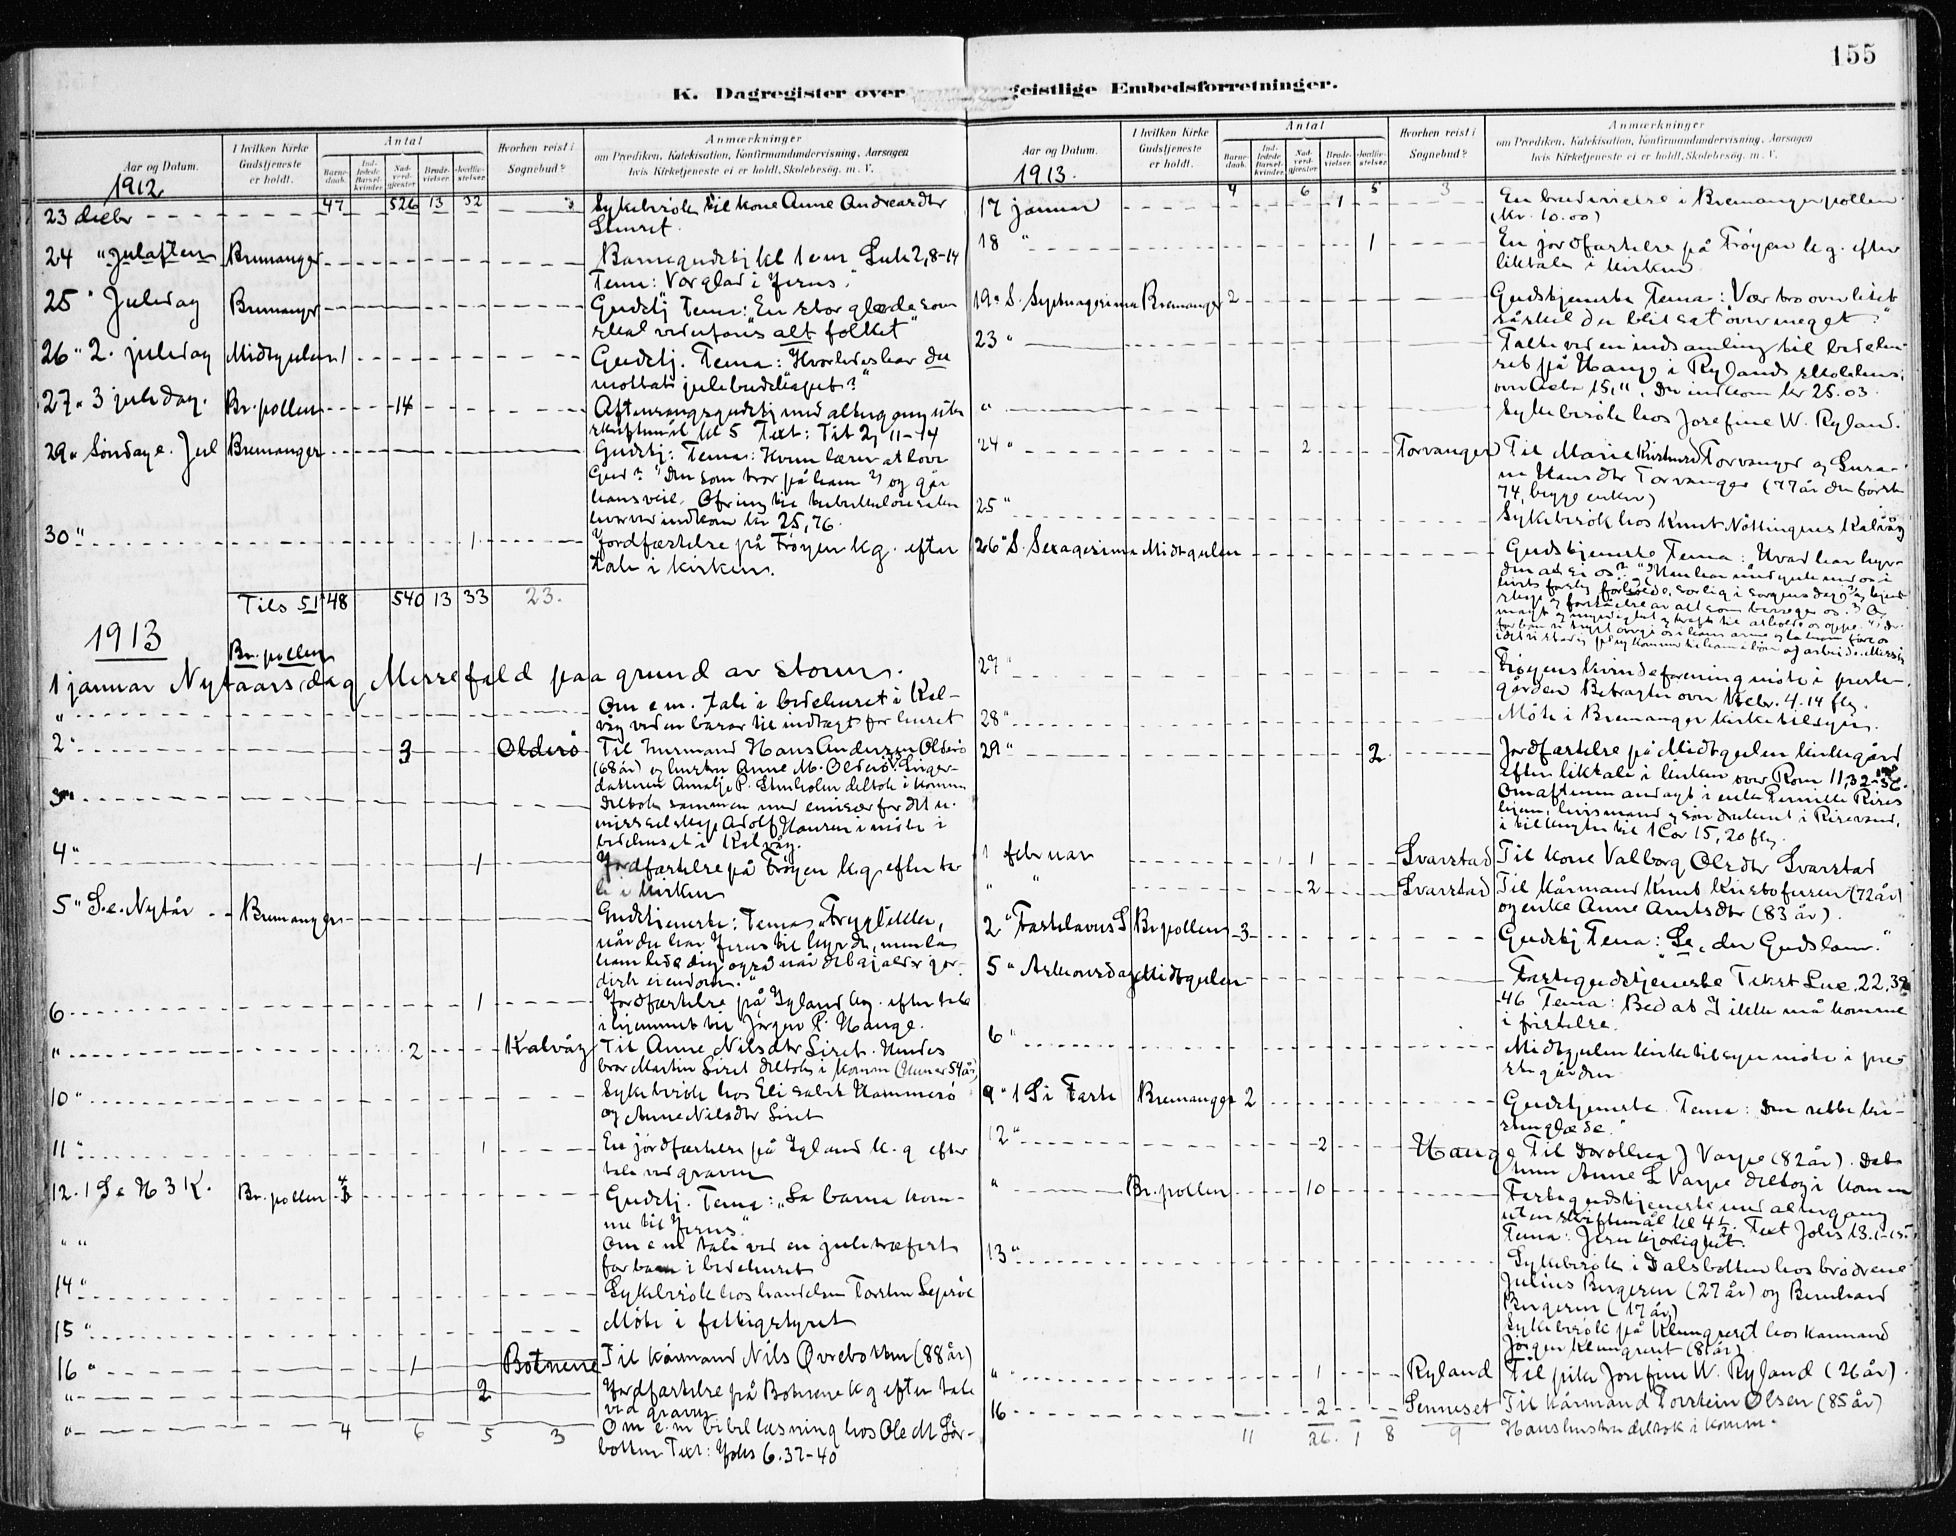 155
K. Dagregister over geistlige Embedsforretninger.
Aar og Datum.
I hvilken Kirke Gudstjeneste er holdt.
Antal
Barne- daab.
Ind- ledede Barsel- kvinder.
Nad- verd- gjester
Brude- vielser.
Jordfæ- stelser.
Hvorhen reist i Sognebud?
Anmærkninger
om Prædiken, Katekisation, Konfirmandundervisning, Aarsagen
hvis Kirketjeneste ei er holdt, Skolebesög. m. V.
1912
23 decbr 47 526 13 32 3 Sykebesök til kone Anne Andreasdtr
24 " Julaften Bremanger Barnegudstj kl 1 em Luk 2, 8-14
Tema: Vær glad i Jesus.
25 " Juledag Bremanger Gudstj Tema: "En stor glæde som
skal vederfares alt folket"
26 " 2. juledag Midtgulen 1 Gudstj. Tema: "Hvorledes har du
mottat julebudskapet?"
27 " 3 juledag. Br. pollen 14 Aftensangsgudstj med altergang uten
skriftmål kl 5 Text: Tit 2, 11-14
29 " Söndag e. Jul Bremanger Gudstj: Tema: Hvem lærer at love
Gud? 1) Den som tror på ham 2) og går
hans veie. Ofring til tuberkulosesaken
hvorved indkom kr 25,76.
30 " 1 Jordfæstelse på Fröyen kg. efter
tale i kirken.
Tils 51 48 540 13 33 23.
1913
Br. pollen
1 januar Nytaarsdag Messefald paa grund av storm.
" Om e m. tale i bedehuset i Kal-
våg ved en basar til indtægt for huset
2 " 3 Olderö Til husmand Hans Andersen Olderö
(68 år) og hustru Anne M. Olderö.
3 " deltok sammen med emissær for det n.
misselskap Adolf Hansen i möte i
bedehuset i Kalvåg.
4 " 1 Jordfæstelse på Fröyen kg efter ta-
le i kirken
5 " S. e. Nytår Bremanger Gudstjeneste: Tema: "Frygt ikke,
når du har Jesus til hyrde, men la
ham lede dig også når det gjælder jor-
disk eiendom."
6 1 Jordfæstelse på Igland kg. efter tale
i hjemmet til Jörgen P. Hauge.
" 2 Kalvåg Til Anne Nilsdtr Liset. Hendes
bror Martin Liset deltok i komm (Hun er 54 år)
10 " Sykebesök hos Elisabet Hammersö
og Anne Nilsdtr Liset
11 " 1 En jordfæstelse på Igland k.g efter
tale ved graven
12. 1 S e H 3 K. Br. pollen 4 Gudstj. Tema: "La barna kom-
me til Jesus."
" " Om e m tale ved en juletræfest
for barn i bedehuset
14 " Sykebesök hos handelsm Torsten
15 " Möte i fattigstyret
16 " 1 Botnene Til kårmand Nils Övrebotten (88 år)
" 2 Jordfæstelse på Botnene kg efter tale
ved graven
" 4 6 5 3 Om e. m bibellæsning hos Ole
botten Text: Johs 6.37-40
Aar og Datum.
I hvilken Kirke Gudstjeneste er holdt.
Antal
Barne- daab.
Ind- ledede Barsel- kvinder.
Nad- verd- gjester
Brude- vielser.
Jordfæ- stelser.
Hvorhen reist i Sognebud?
Anmærkninger
om Prædiken, Katekisation, Konfirmandundervisning, Aarsagen
hvis Kirketjeneste ei er holdt, Skolebesög. m. V.
1913.
4 6 5 3
17 januar 1 En brudevielse i Bremangerpollen
(kr. 10.00)
18 " 1 En jordfæstelse på Fröyen kg. efter
liktale i kirken
19 " S. Septuagesima Bremanger 2 Gudstjeneste Tema: "Vær tro over litet
så skal du bli sat over meget."
23 " Talte ved en indsamling til bedehu-
set på Hauge i Rylands skolehus
over Acta 15,11. Der indkom kr 25.03.
" Sykebesök hos Josefine W. Ryland.
24 " 2 Torvanger Til Marie Torvanger og
Hansdtr Torvanger (77 år den förste
74, begge enker)
25 " Sykebesök hos Knut Nöttingnes Kalvåg
26 " S. Sexagesima Midtgulen Gudstjeneste Tema: Hvad har
27 " Fröyens kvindeforening möte i preste-
gården Betragtn over Hebr. 4.14 flg.
28 " Möte i Bremanger kirketilsyn.
29 " 2 Jordfæstelse på Midtgulen kirkegård
efter liktale i kirken over Rom 11, 32-36.
Om aftenen andagt i enke Pernille Rises
hjem,
i tilknytn til 1 Cor 15, 20 flg.
1 februar 1 Svarstad Til kone Valborg Olsdtr Svarstad
" " 2 Svarstad Til kårmand Knut Kristofersen (72 år)
og enke Anne Arntsdtr (83 år).
2 " Fastelavns S Br pollen 3 Gudstj Tema: "Se, det Guds lam."
5 " Askeonsdag Midtgulen Fastegudstjeneste Tekst Luc. 22, 39-
46 Tema: Bed at I ikke må komme
i fristelse.
6 " Midtgulen kirketilsyn möte i pre-
stegården
9 " 1 S i Faste Bremanger 2 Gudstjeneste Tema: "Den rette kri-
stenglæde."
12 " 2 Hauge Til Dorothea J Varpe (82 år). Dat-
teren Anne L Varpe deltog i komm
" Br. pollen 10 Fastegudstjeneste med altergang
uten skriftmål kl 4½. Text Johs 13.1-15
Tema: Jesu kjærlighet.
13 " Sykebesök i Dalsbotten hos brödrene
Julius Birgesen (27 år) og Bernhard
Birgesen (17 år)
Sykebesök på Klungreset hos kårmand
Jörgen Klungreset (81 år)
" 1 Ryland Til pike Josefine W. Ryland (26 år).
16 2 Senneset Til kårmand Torstein Olsen (85 år)
11 26. 1 8 9 Hans hustru deltok i komm.